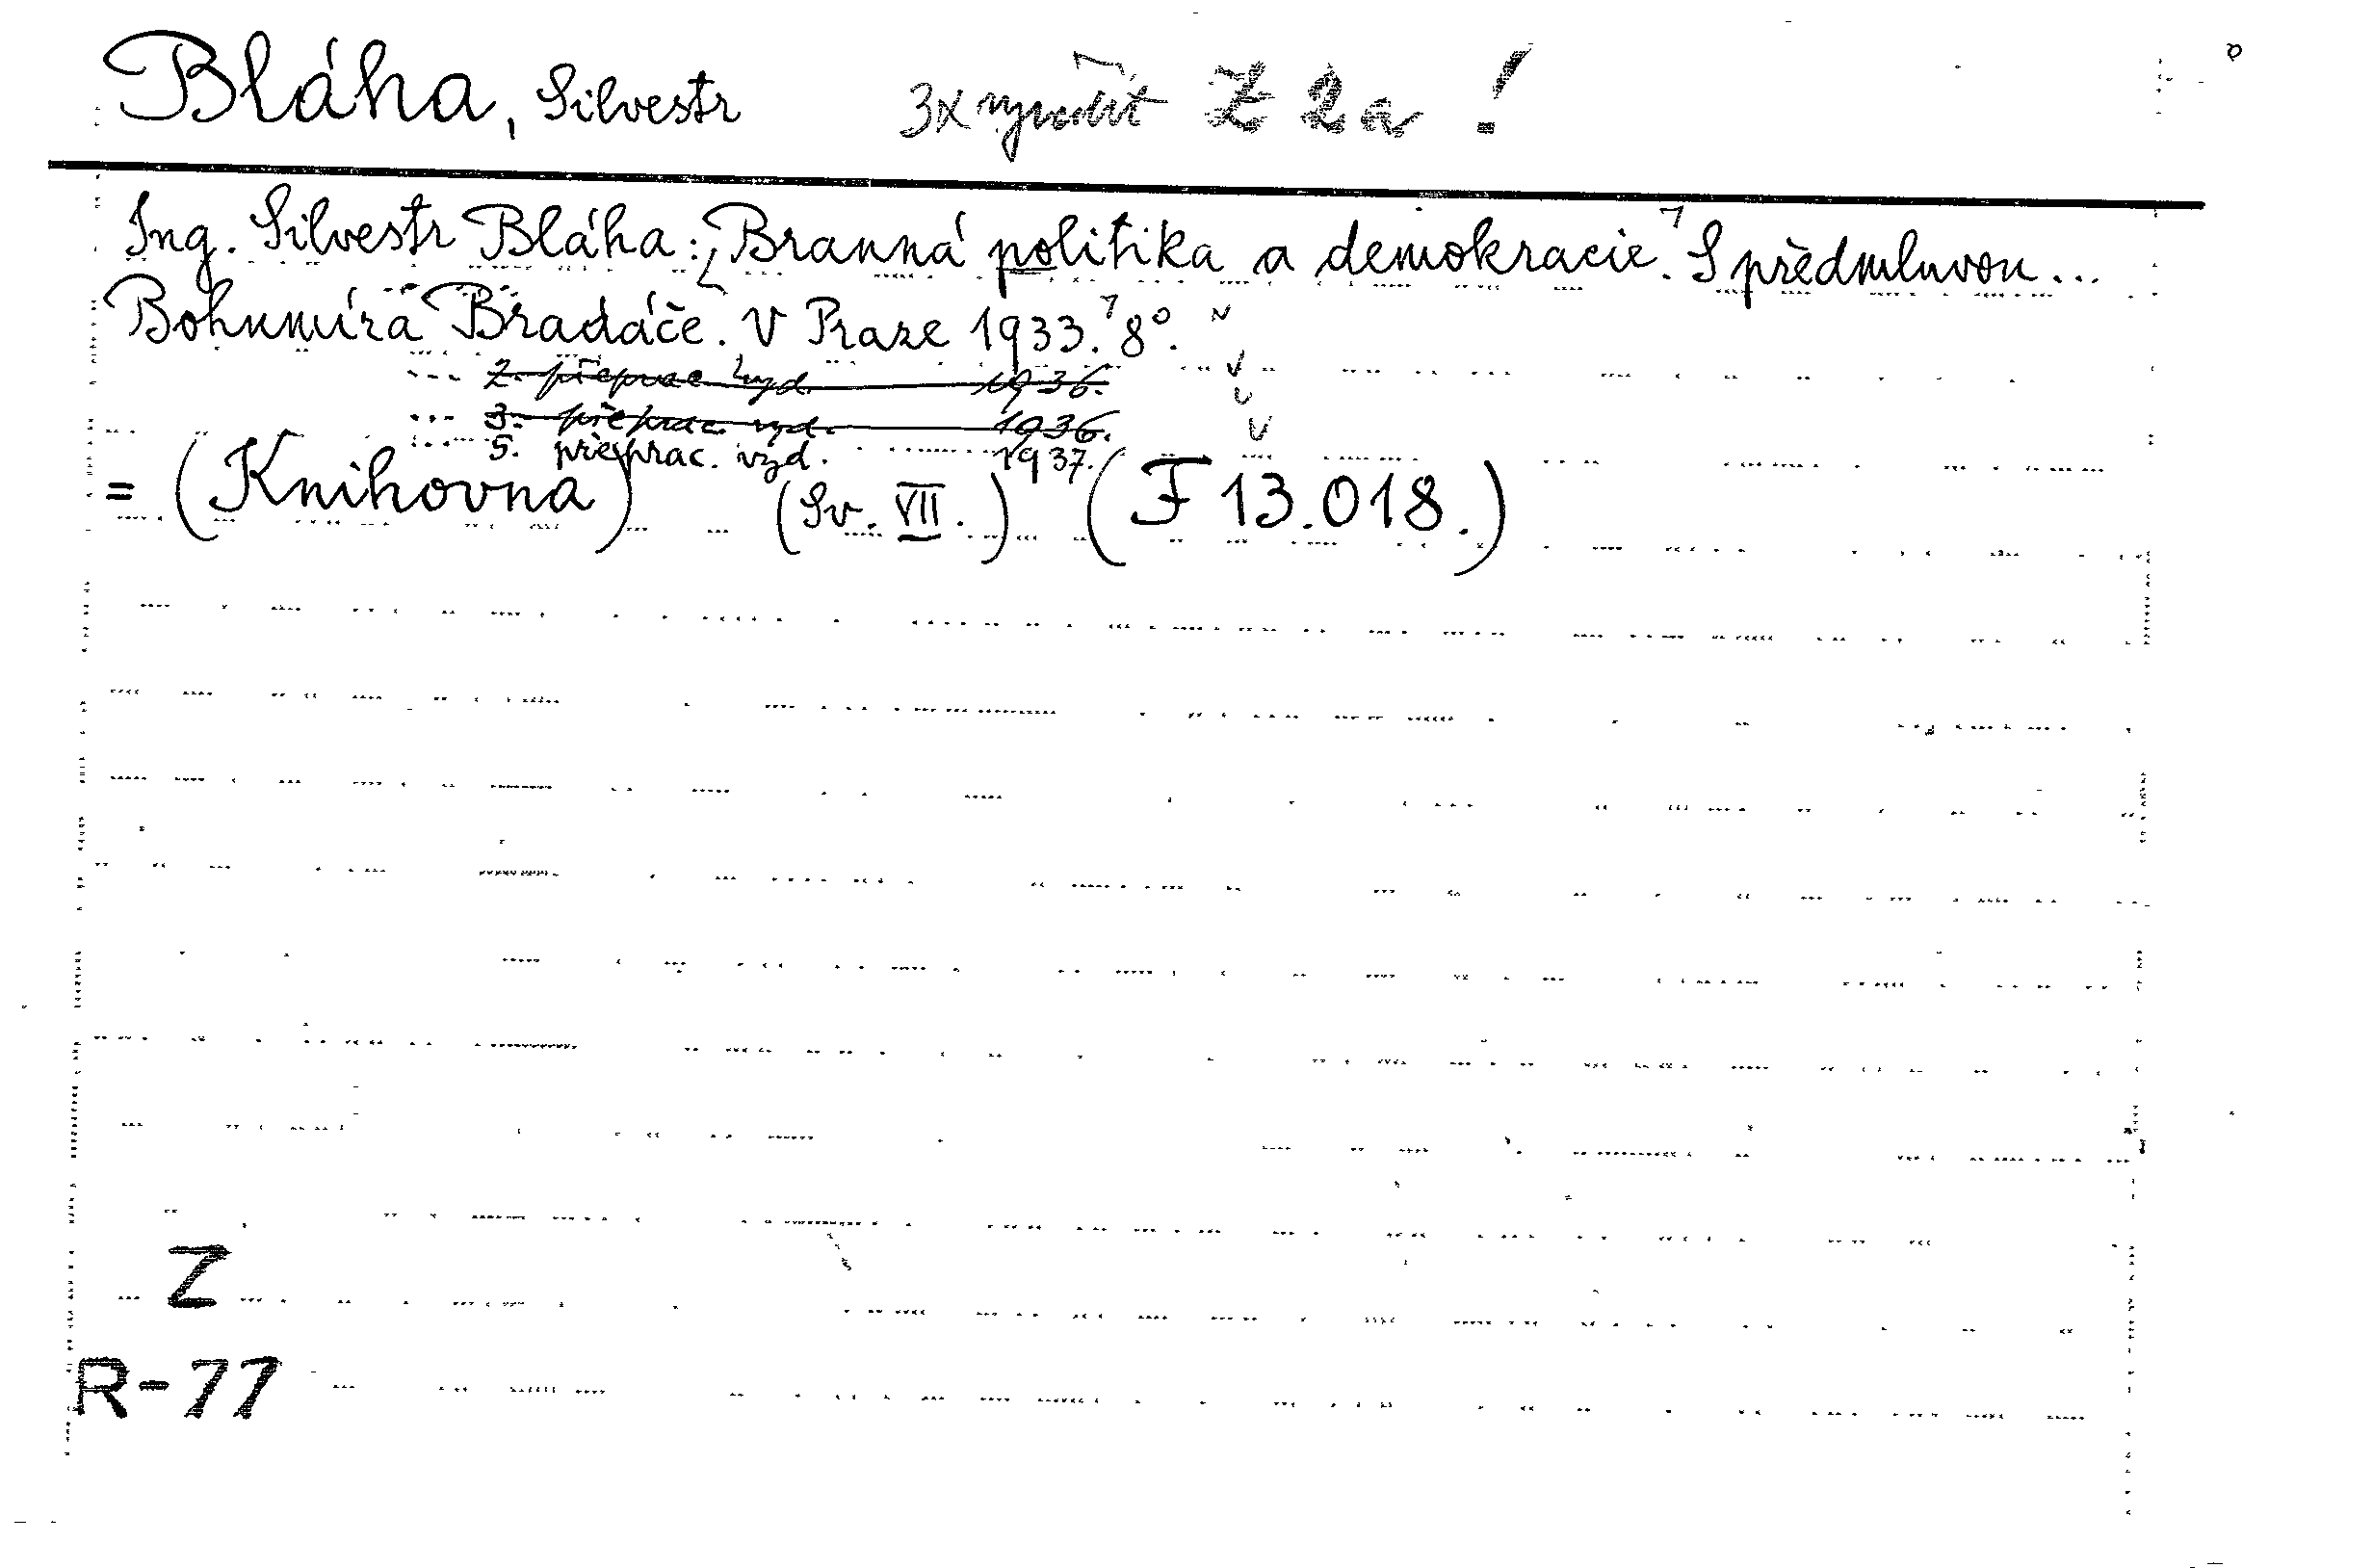 Bláha, Silvestr 3x Z 2a !
Ing. Silvestr Bláha: Branná politika a demokracie. S předmluvou...
Bohumíra Bradáče. V Praze 1933. 8°.
--- 2. přeprac. vyd. 1936.
--- 3. přeprac. vyd. 1936.
--- 5. přeprac. vyd. 1937.
= (Knihovna) (Sv. VII.) (F 13.018.)
Z
R-77